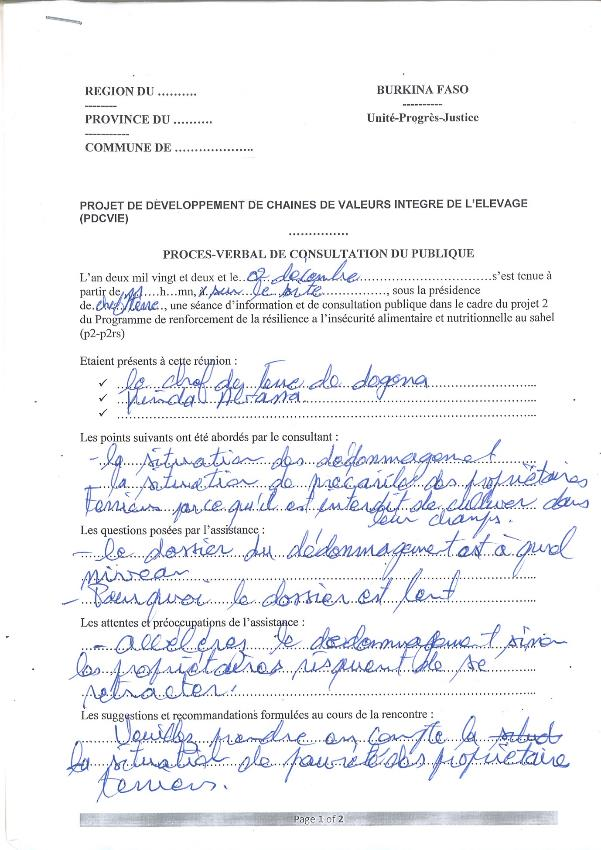 REGION DU ..........
BURKINA FASO
--------
----------
PROVINCE DU ..........
Unité-Progrès-Justice
-----------
COMMUNE DE ....................
PROJET DE DÉVELOPPEMENT DE CHAINES DE VALEURS INTEGRE DE L'ELEVAGE
(PDCVIE)
...............
PROCES-VERBAL DE CONSULTATION DU PUBLIQUE
L'an deux mil vingt et deux et le 02 décembre s'est tenue à
partir de 11 h...mn, pour le site, sous la présidence
de chef terre, une séance d'information et de consultation publique dans le cadre du projet 2
du Programme de renforcement de la résilience a l'insécurité alimentaire et nutritionnelle au sahel
(p2-p2rs)
Etaient présents à cette réunion :
✓ le chef de Terre de dogona
✓
✓
Les points suivants ont été abordés par le consultant :
- la situation des dédommagement
- la situation de précarité des propriétaires
terriens parce qu'il est interdit de cultiver dans
leur champs.
Les questions posées par l'assistance :
- le dossier du dédommagement est à quel
niveau
- Pourquoi le dossier est lent
Les attentes et préoccupations de l'assistance :
- accélérer le dedommagement sinon
les propriétaires risquent de se
retracter.
Les suggestions et recommandations formulées au cours de la rencontre :
Veuillez prendre en compte la
la situation de pauvreté des propriétaire
terriens.
Page 1 of 2